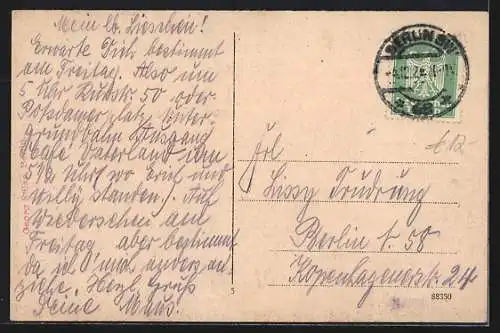 Mein lb. Lieschen!
Erwarte Dich bestimmt
am Freitag. Also um
5 Uhr 50 oder
Potsdamerplatz Unter
grundbahn Ausgang
Café Vaterland um
5¼ Uhr wo Erich und
Willy standen. Auf
Wiedersehen am
Freitag aber bestimmt
da ich mich anders an
ziehe. Herzl. Gruß
Deine Maus.
BERLIN SW
Frl.
Lissy Trudrung
Berlin N. 58
Kopenhagenerstr. 24
5
88350